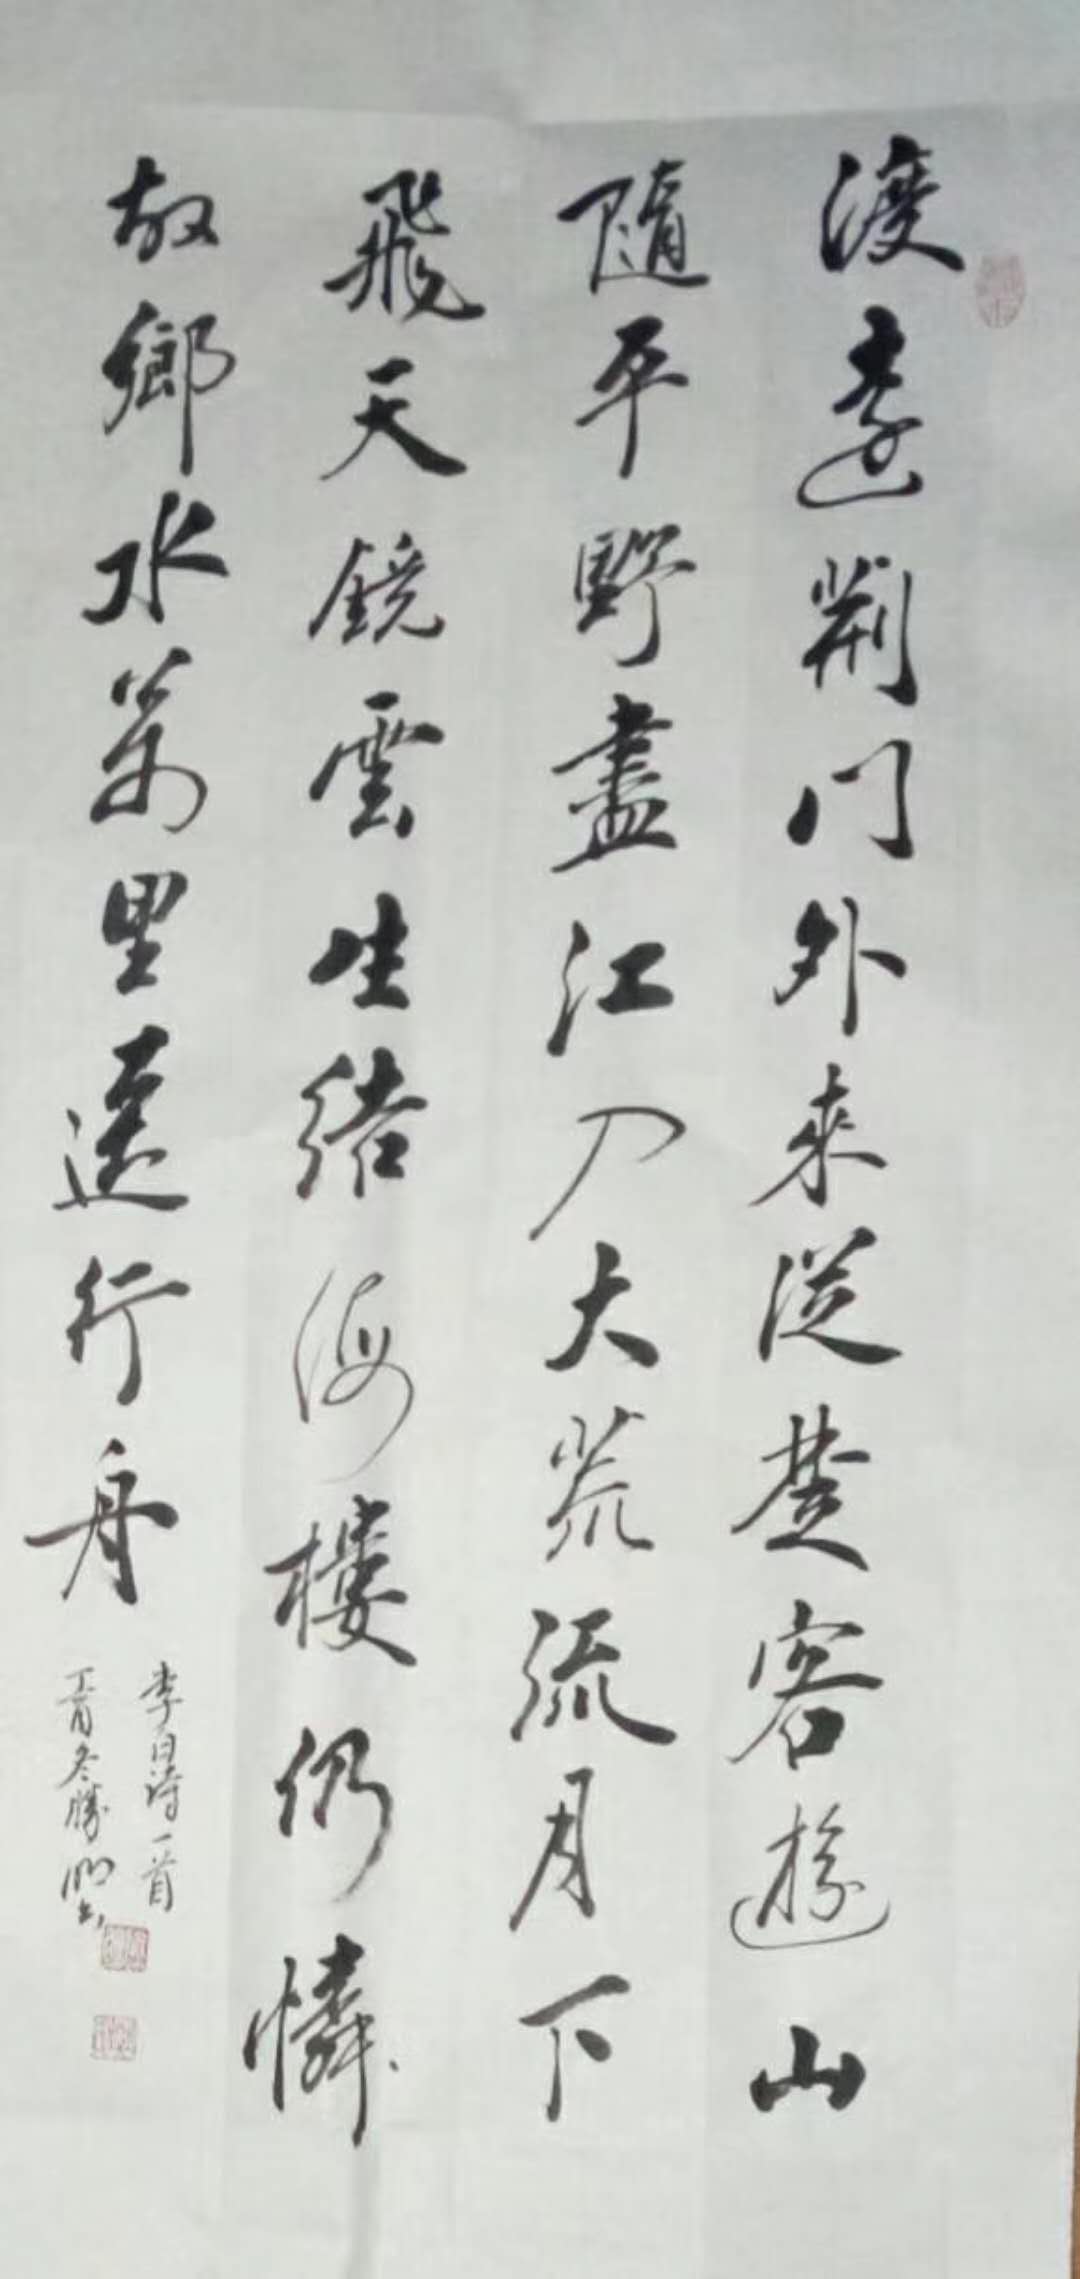 渡遠荆门外来從楚客遊山
隨平野盡江入大荒流月下
飛天鏡雲生结海樓仍憐
故鄉水萬里行舟
李白詩一首
冬勝明书